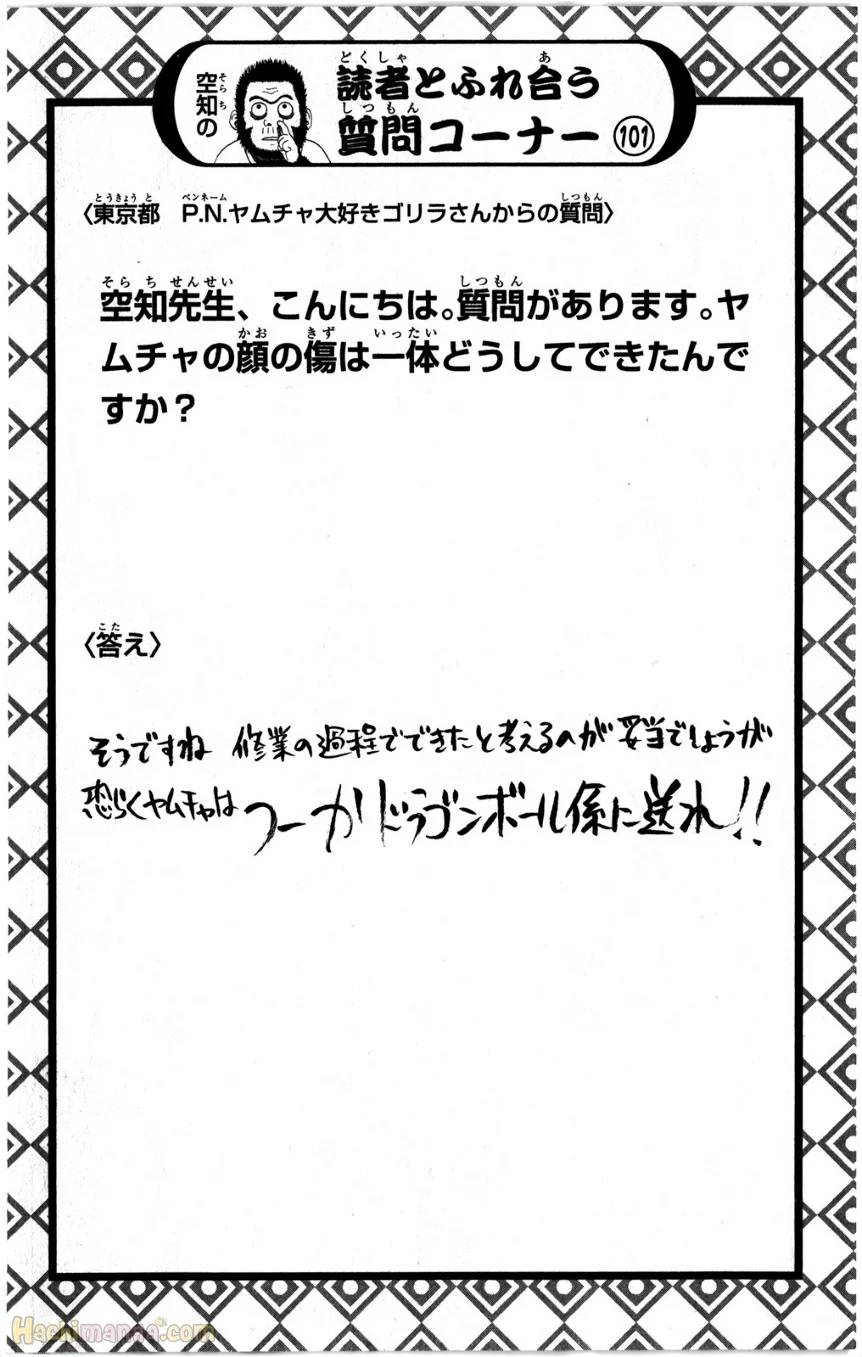 空知の
読者とふれ合う
質問コーナー 101
〈東京都　P.N.ヤムチャ大好きゴリラさんからの質問〉
空知先生、こんにちは。質問があります。ヤ
ムチャの顔の傷は一体どうしてできたんで
すか？
〈答え〉
そうですね 修業の過程でできたと考えるのが妥当でしょうが
恐らくヤムチャは つーかドラゴンボール係に送れ!!
Hachimanga.com